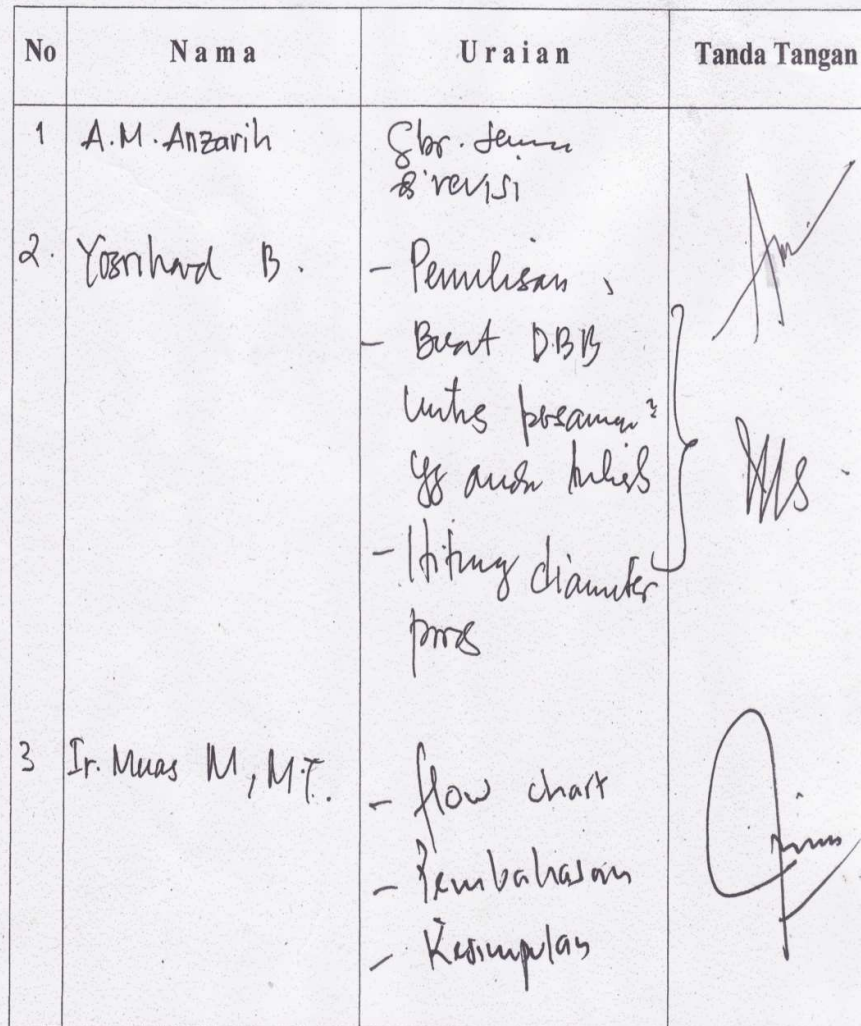 No Nama Uraian Tanda Tangan
1 A.M. Anzarih Gbr.
direvisi
2. Yosrihard B. - Penulisan
- Buat D.B.B
untuk persamaan²
yg anda tulis
- Hitung diameter
poros
3 Ir. Muas M, M.T. - flow chart
- Pembahasan
- Kesimpulan